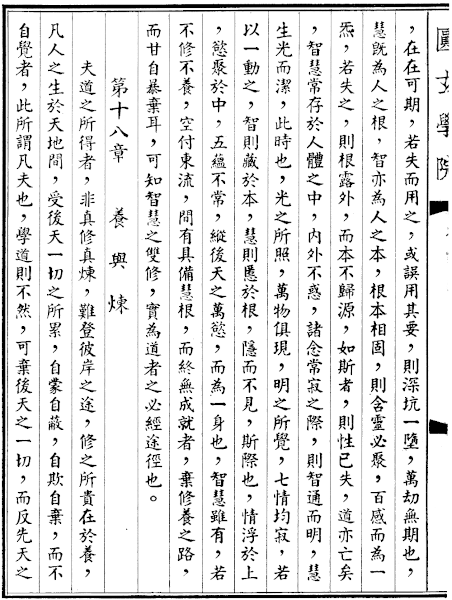 ，在在可期，若失而用之，或誤用其要，則深坑一墮，萬劫無期也，
慧既為人之根，智亦為人之本，根本相固，則含靈必聚，百感而為一
炁，若失之，則根露外，而本不歸源，如斯者，則性已失，道亦亡矣
，智慧常存於人體之中，內外不惑，諸念常寂之際，則智通而明，慧
生光而潔，此時也，光之所照，萬物俱現，明之所覺，七情均寂，若
以一動之，智則藏於本，慧則匿於根，隱而不見，斯際也，情浮於上
，慾聚於中，五蘊不常，縱後天之萬慾，而為一身也，智慧雖有，若
不修不養，空付東流，間有具備慧根，而終無成就者，棄修養之路，
而甘自暴棄耳，可知智慧之雙修，實為道者之必經途徑也。
第十八章　養與煉
夫道之所得者，非真修真煉，難登彼岸之途，修之所貴在於養，
凡人之生於天地間，受後天一切之所累，自蒙自蔽，自欺自棄，而不
自覺者，此所謂凡夫也，學道則不然，可棄後天之一切，而反先天之